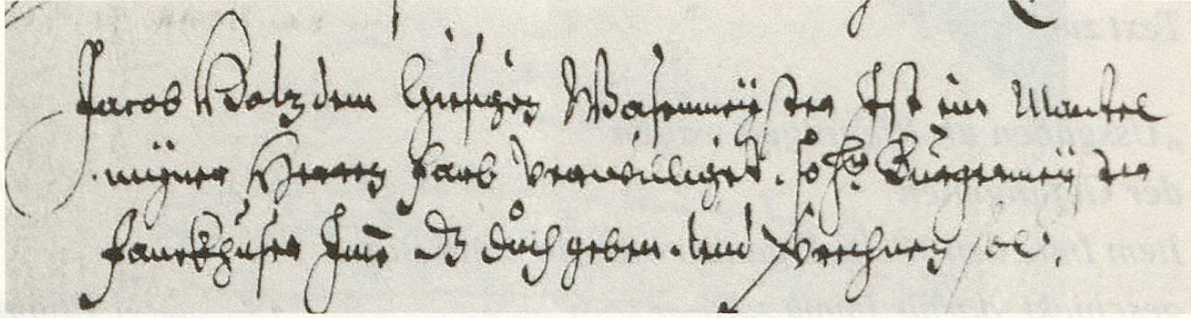 Jacob Kotz dem hiesigen Wasenmeyster Ist ein Mantel
myner Herren farb verwilliget. so hr Burgermeyster
fanckhuser Ime dz duch geben. und verrechnen sol.